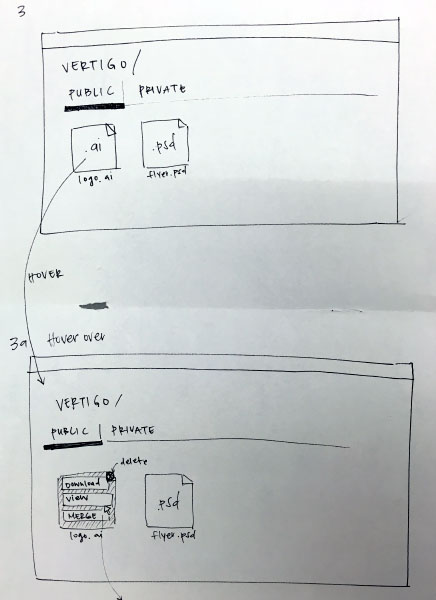 3
VERTIGO/
PUBLIC | PRIVATE
.ai
.psd
logo.ai
flyer.psd
HOVER
3a Hover over
VERTIGO/
PUBLIC | PRIVATE
delete
DOWNLOAD
VIEW
MERGE
.psd
logo.ai
flyer.psd